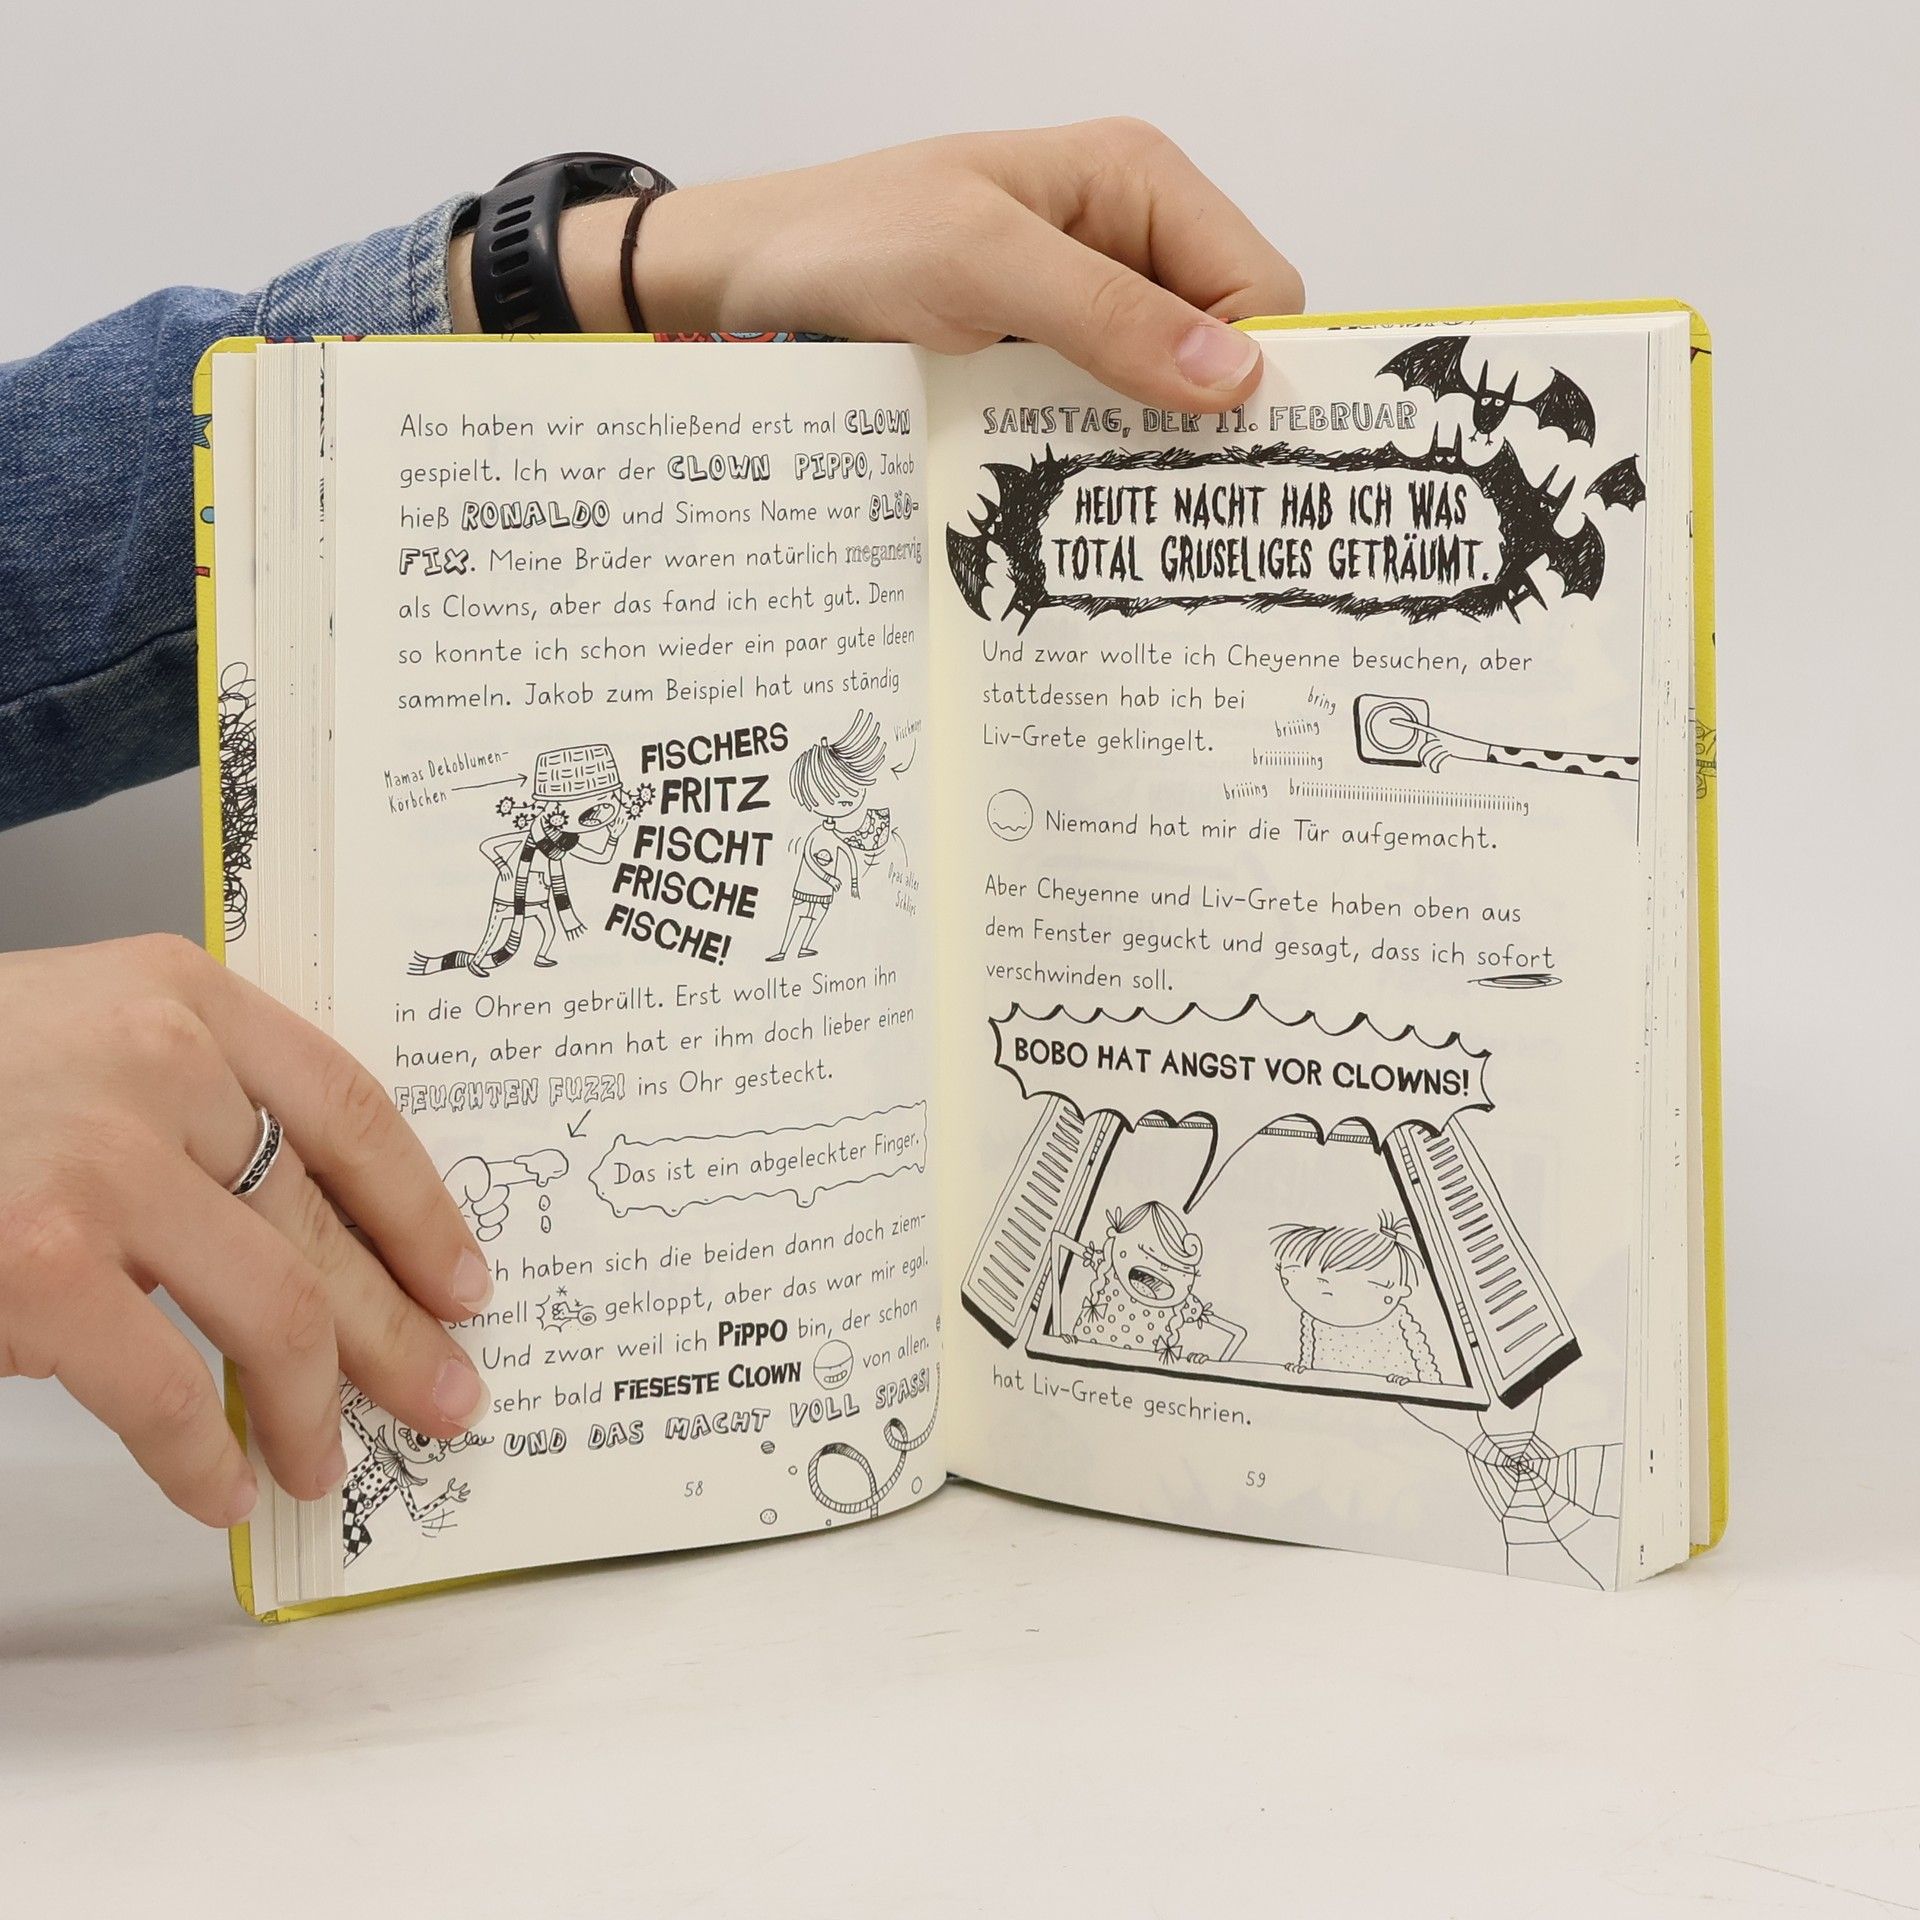 Also haben wir anschließend erst mal CLOWN
gespielt. Ich war der CLOWN PIPPO, Jakob
hieß RONALDO und Simons Name war BLÖD-
FIX. Meine Brüder waren natürlich meganervig
als Clowns, aber das fand ich echt gut. Denn
so konnte ich schon wieder ein paar gute Ideen
sammeln. Jakob zum Beispiel hat uns ständig
Mamas Dekoblumen-
Körbchen
FISCHERS
FRITZ
FISCHT
FRISCHE
FISCHE!
Wischmopp
Opas alter
Schlips
in die Ohren gebrüllt. Erst wollte Simon ihn
hauen, aber dann hat er ihm doch lieber einen
FEUCHTEN FUZZI ins Ohr gesteckt.
Das ist ein abgeleckter Finger.
haben sich die beiden dann doch ziem-
schnell gekloppt, aber das war mir egal.
Und zwar weil ich PiPPO bin, der schon
sehr bald FiESESTE CLOWN von allen.
UND DAS MACHT VOLL SPASS!
58
SAMSTAG, DER 11. FEBRUAR
HEUTE NACHT HAB ICH WAS
TOTAL GRUSELIGES GETRÄUMT.
Und zwar wollte ich Cheyenne besuchen, aber
stattdessen hab ich bei
Liv-Grete geklingelt.
bring
briiiing
briiiiiiiiiiing
briiiing
briiiiiiiiiiiiiiiiiiiiiiiiiiiiiiiiiiiiiiiiing
Niemand hat mir die Tür aufgemacht.
Aber Cheyenne und Liv-Grete haben oben aus
dem Fenster geguckt und gesagt, dass ich sofort
verschwinden soll.
BOBO HAT ANGST VOR CLOWNS!
hat Liv-Grete geschrien.
59